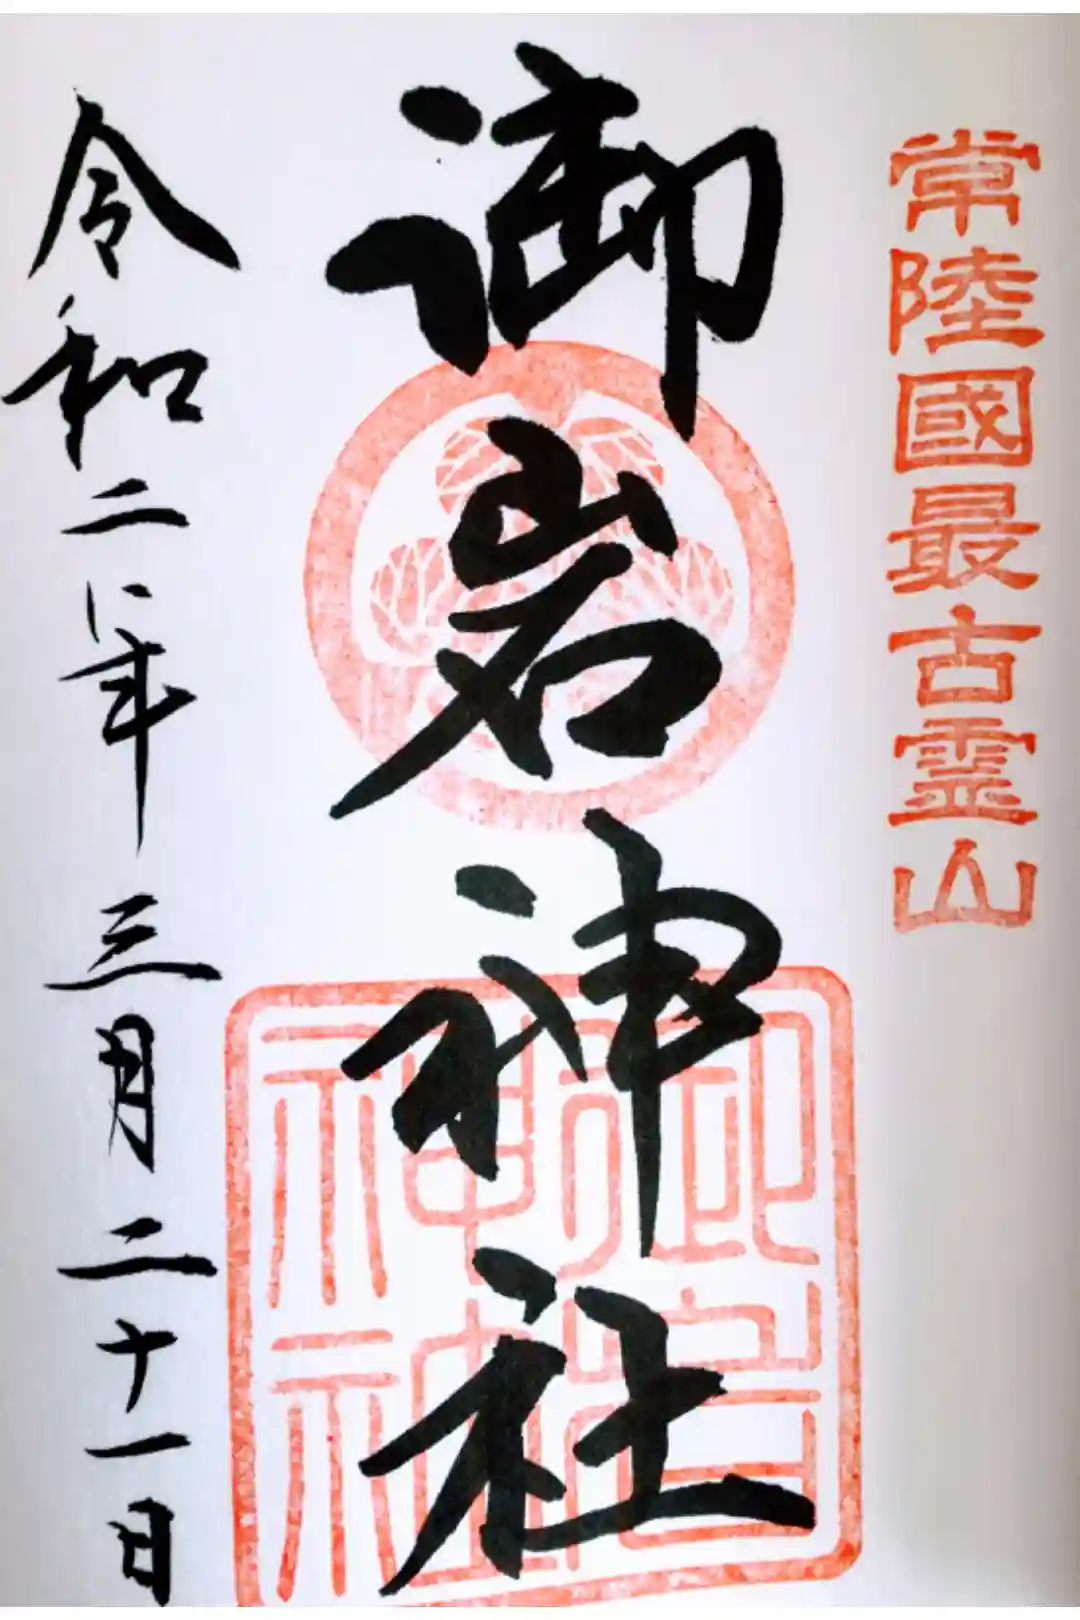 常陸國最古霊山
御岩神社
御岩神社
令和二年三月二十一日